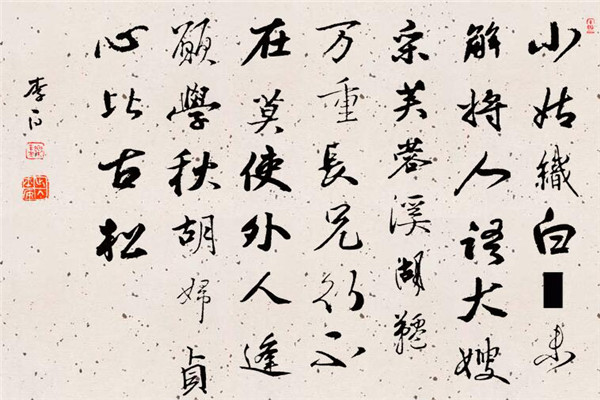 小姑織白未
解將人語大嫂
芙蓉溪湖韆
万重長兄行不
在莫使外人逢
願學秋胡婦貞
心比古松
李白